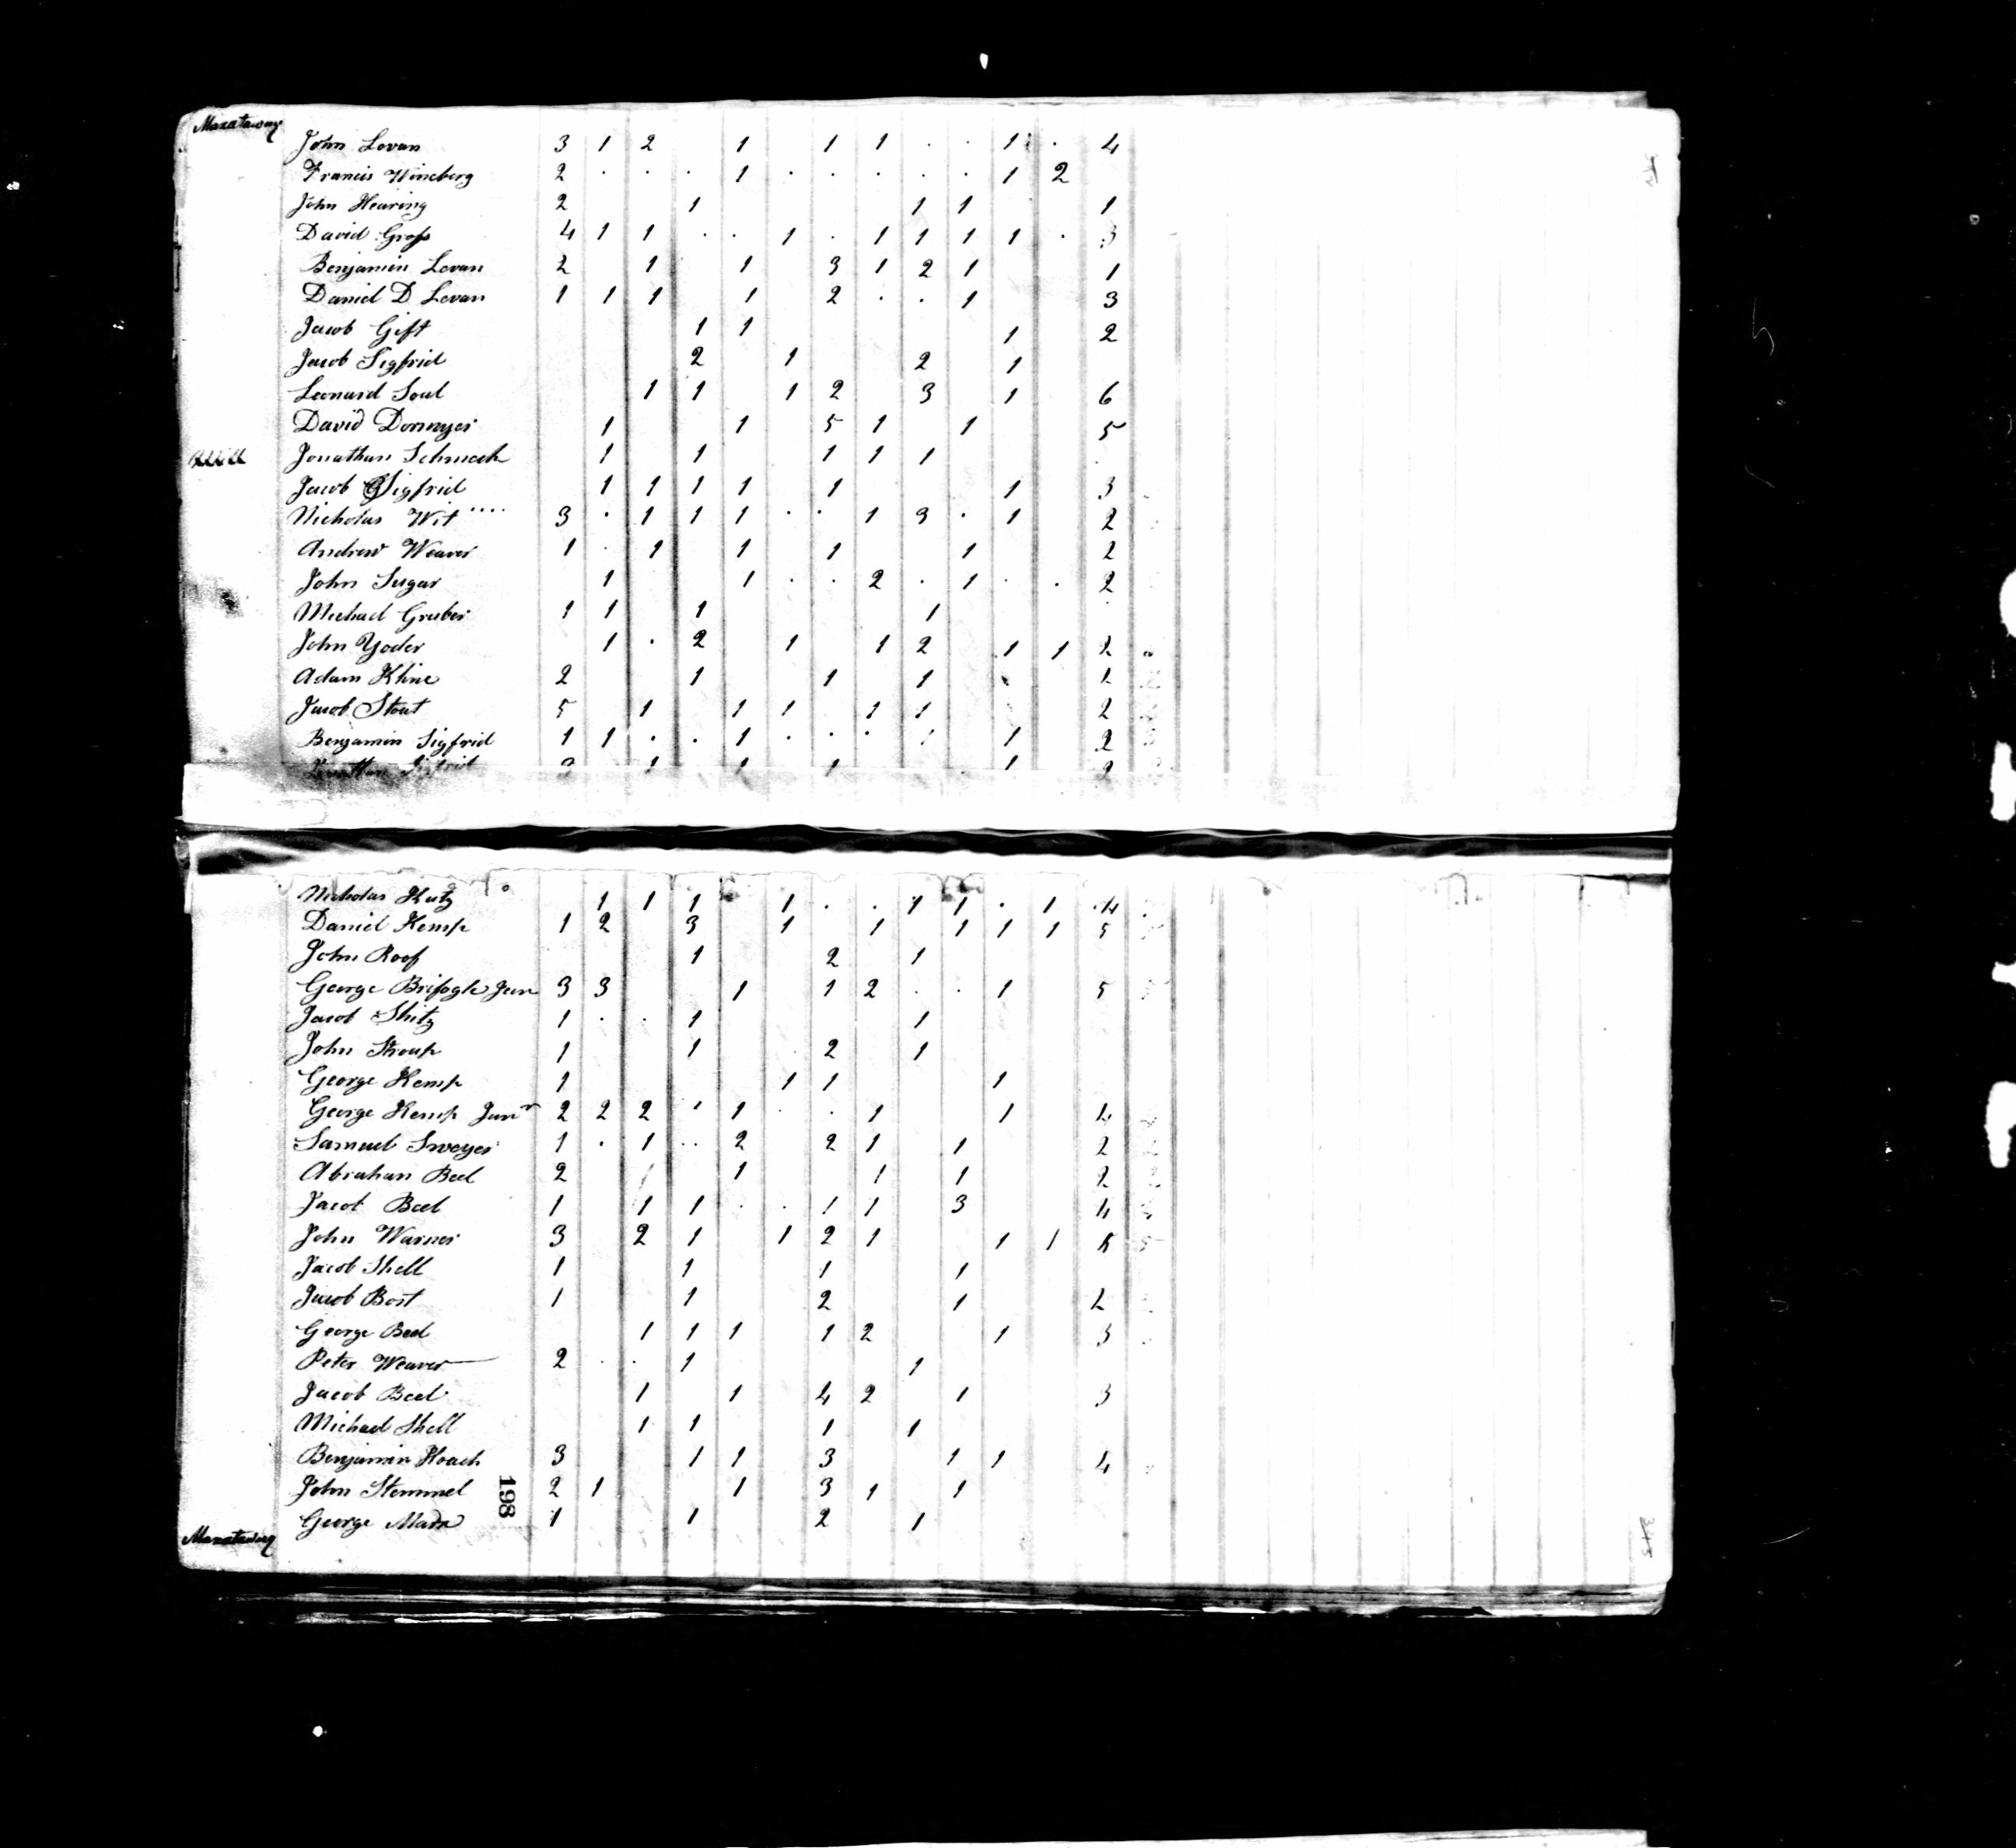 Maxatawny
John Levan 3 1 2 1 1 1 . . 1 . 4
Francis Wineberg 2 . . . 1 . . . . . 1 2
John Hearing 2 1 1 1 1
David Gross 4 1 1 . . 1 . 1 1 1 1 . 3
Benjamin Levan 2 1 1 3 1 2 1 1
Daniel D Levan 1 1 1 1 2 . . 1 3
Jacob Gift 1 1 1 2
Jacob Sigfrid 2 1 2 1
Leonard Soul 1 1 1 2 3 1 6
David Dormyer 1 1 5 1 1 5
Jonathan Schmeck 1 1 1 1 1
Jacob Sigfrid 1 1 1 1 1 1 3
Nicholas Wit .... 3 . 1 1 1 . . 1 3 . 1 2
Andrew Weaver 1 . 1 1 1 1 2
John Sugar 1 1 . . 2 . 1 . . 2
Michael Gruber 1 1 1 1
John Yoder 1 . 2 1 1 2 1 1 2
Adam Kline 2 1 1 1 1
Jacob Stout 5 1 1 1 1 1 2
Benjamin Sigfrid 1 1 . . 1 . . . 1 1 2
Sigfrid 1 1 1 1 2
Nicholas Kutz 1 1 1 1 . . 1 1 . 1 4
Daniel Kemp 1 2 3 1 1 1 1 1 5
John Roof 1 2 1
George Brifogle Jun 3 3 1 1 2 . . 1 5
Jacob Shitz 1 . . 1 1
John Stroup 1 1 2 1
George Kemp 1 1 1 1
George Kemp Junr 2 2 2 1 . . 1 1 4
Samuel Sweyer 1 . 1 .. 2 2 1 1 2
Abraham Beel 2 1 1 1 1 2
Jacob Beel 1 1 1 . . 1 1 3 4
John Warner 3 2 1 1 2 1 1 1 5
Jacob Shell 1 1 1 1
Jacob Bost 1 1 2 1 2
George Beel 1 1 1 1 2 1 3
Peter Weaver 2 . . 1 1
Jacob Beel 1 1 4 2 1 3
Michael Shell 1 1 1 1
Benjamin Hoach 3 1 1 3 1 1 4
John Stemmel 2 1 1 3 1 1
198
George Madr 1 1 2 1
Maxatawny